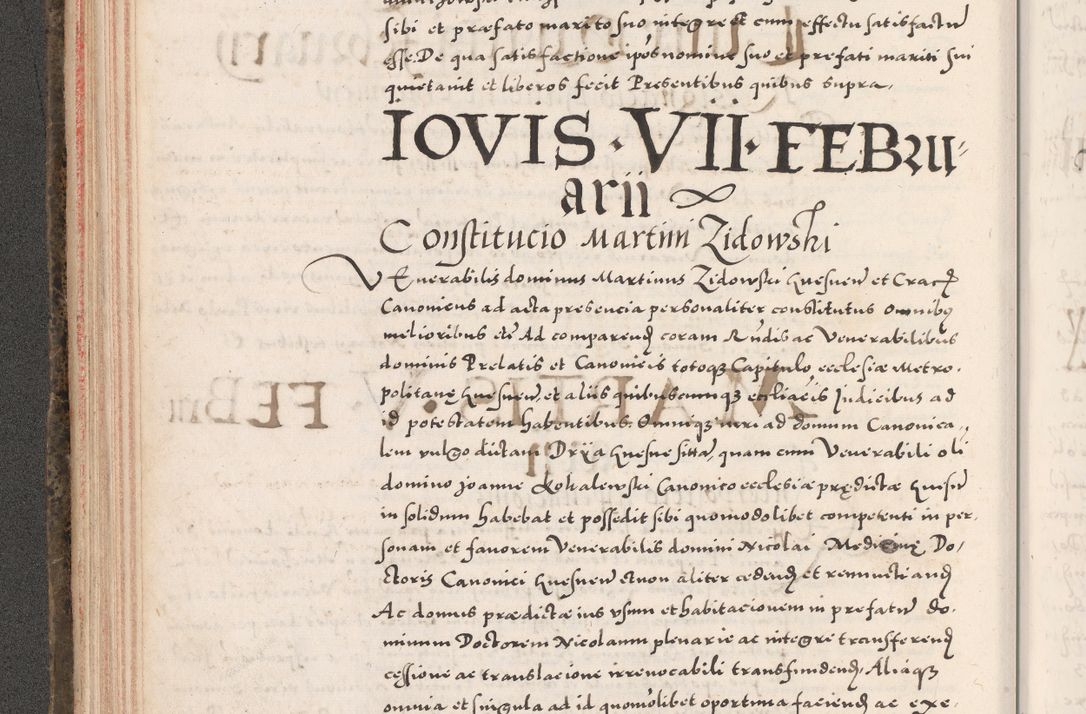 sibi et præfato marito suo integre et cum effectu satisfactū
esse. De qua satisfactione ipōs nomine suo et prefati mariti sui
quietavit et liberos fecit Presentibus quibus supra.
IOVIS · VII · FEBRU
arii
Constitucio Martini Zidowski
VEnerabilis dominus Martinus Zidowski Gnesnen̄ et Crac̄
Canonicus ad acta presencia personaliter constitutus Omnibq
melioribus etc̄ Ad comparend coram Rn̄dis ac Venerabilibus
dominis Prelatis et Canonicis totoq Capitulo ecclesiæ Metro.
politanę Gnesnen̄, et aliis quibuscumqz eccliācis Iudicibus ad
id potestatem habentibus. Omniqz iuri ad domum Canonica,,
lem vulgo dictam Dryia Gnesne sittā, quam cum Venerabili oli
domino Joanne Kokalewski Canonico ecclesiæ prędictæ Gnesn̄
in solidum habebat et possedit sibi quomodolibet competenti in per.
sonam et favorem Venerabilis domini Nicolai Medicinę Do,
ctoris Canonici Gnesnen̄ et non aliter cedend et renunctiand
Ac domus prædictæ ius usum et habitacionem in prefatū do.
minum Doctorem Nicolaum plenarie ac integre transferend
cessione ac translacione irrevocabili transfundend, Aliaqz
omnia et singula ad id quomōlibet oportuna faciend ac exe.